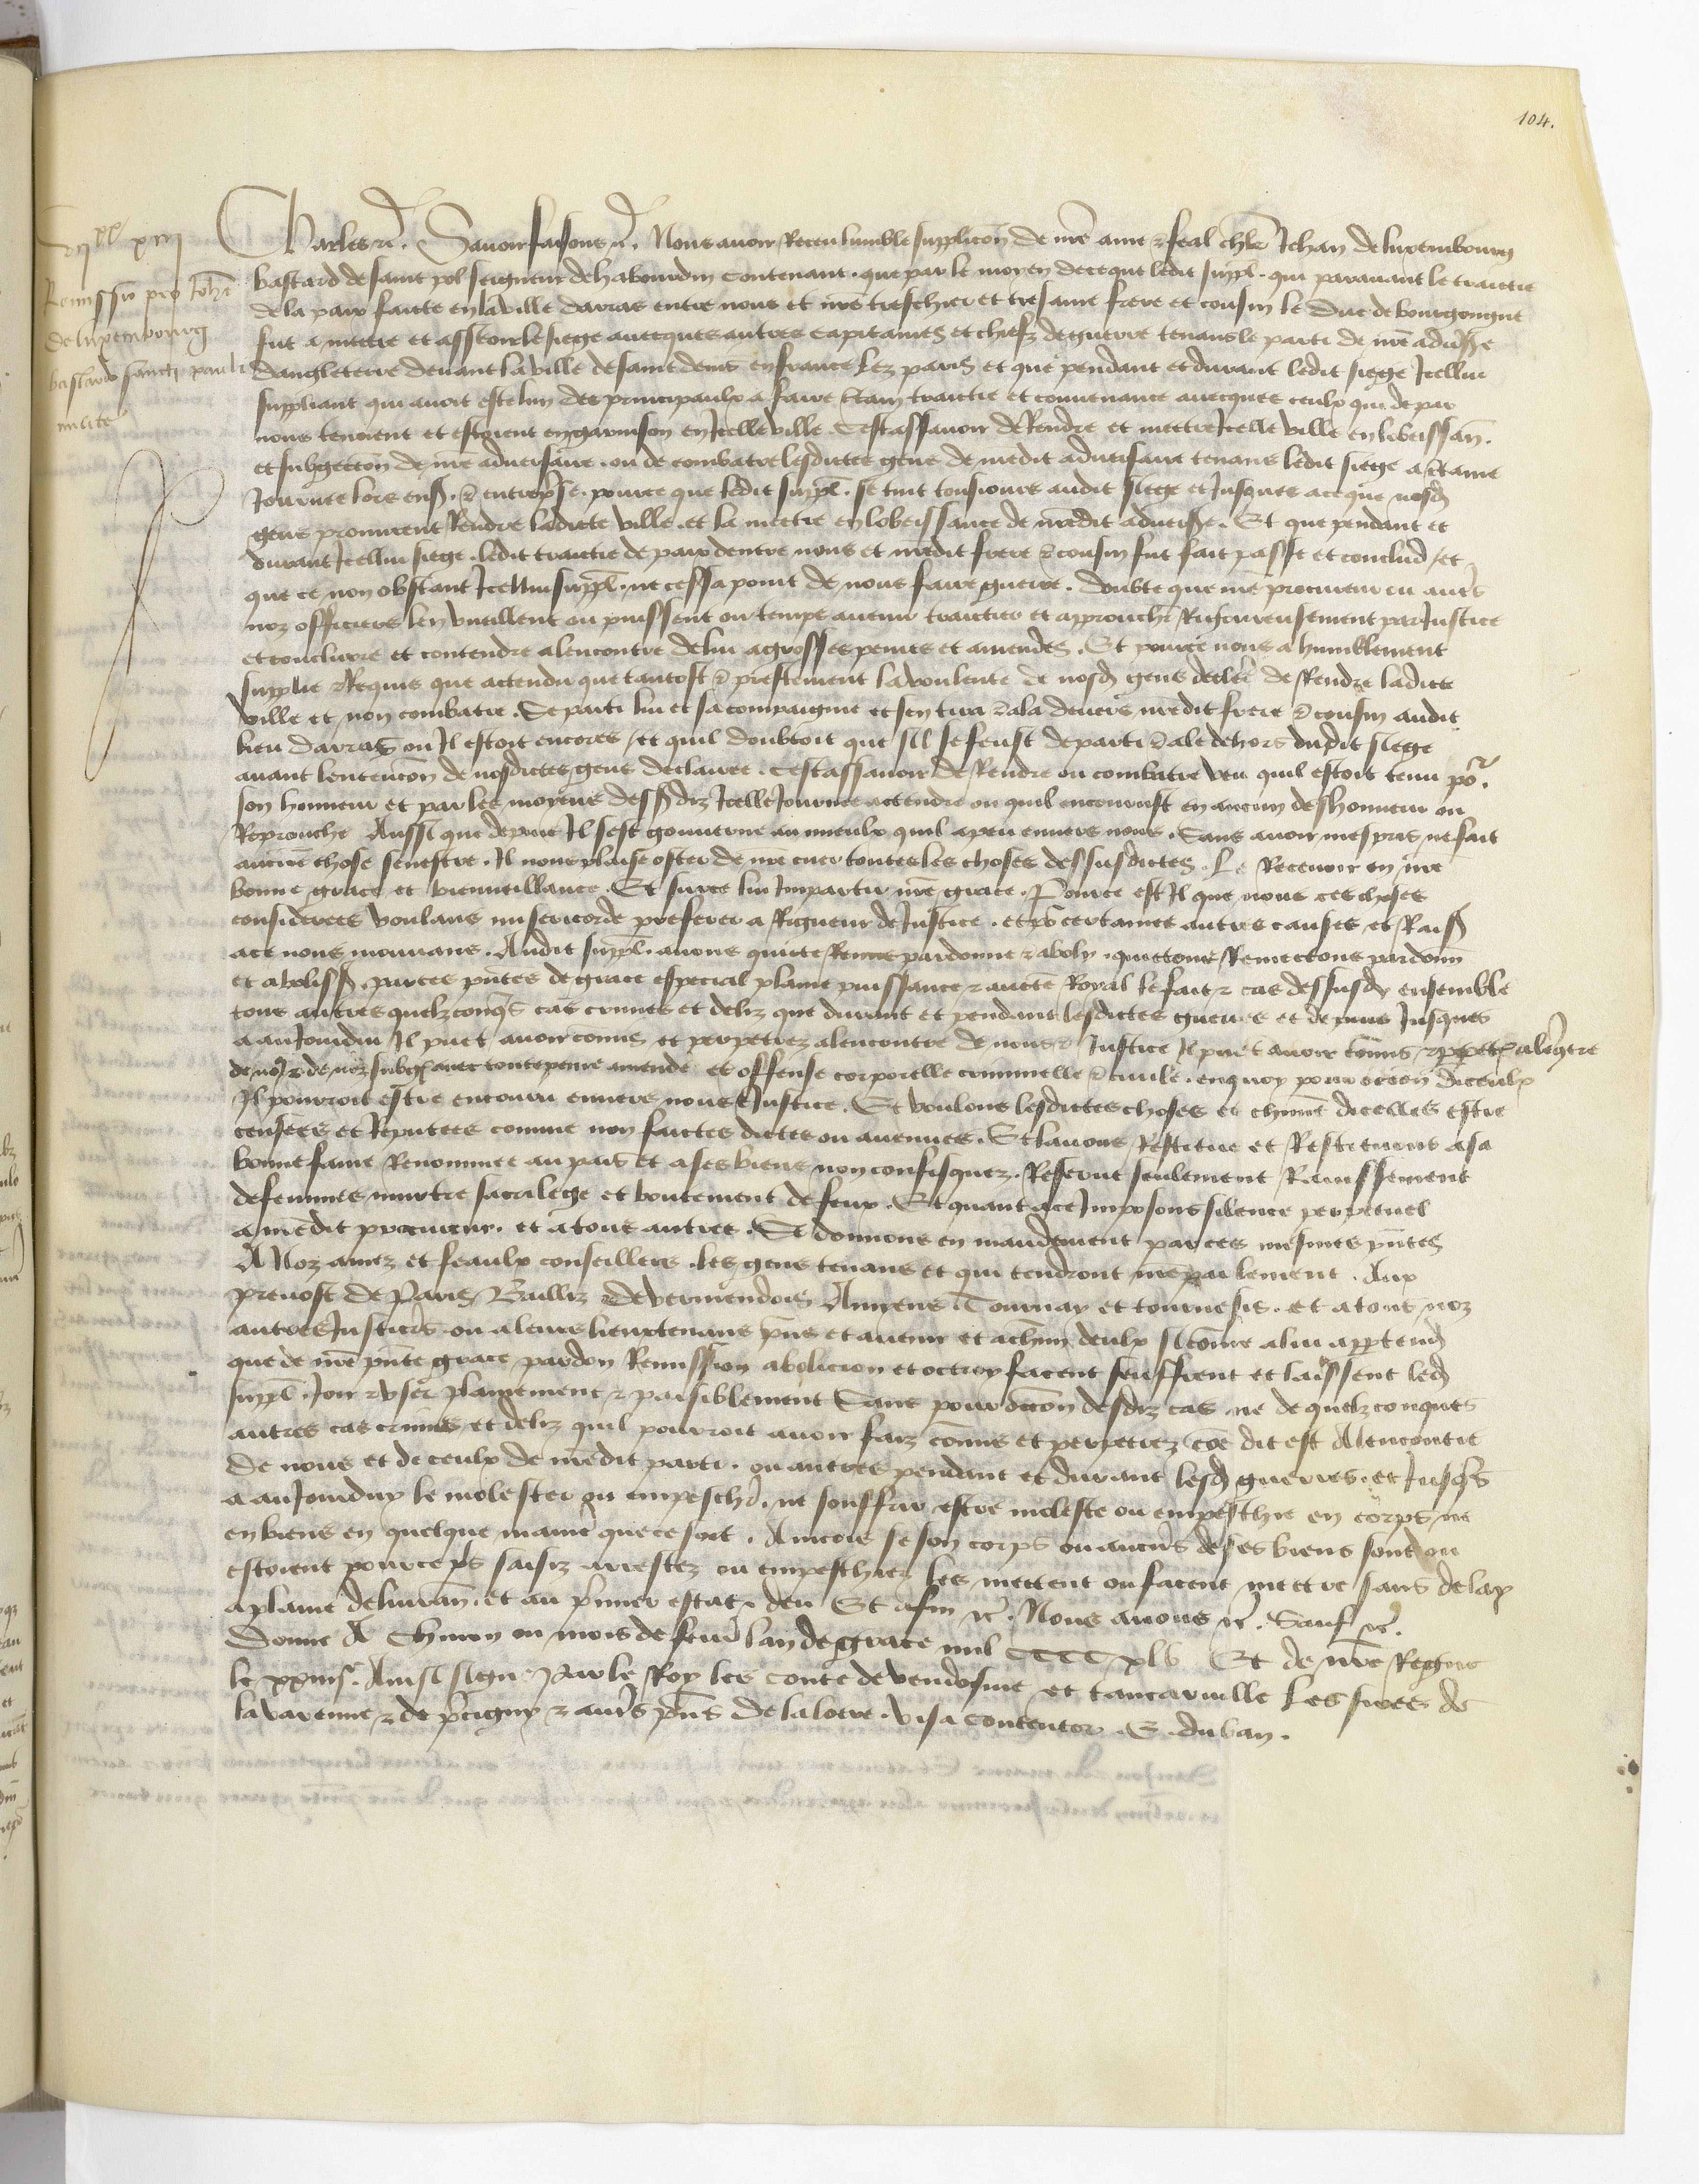 104.
vij xx xiij
Remissio pro Johe
de luxembourg
bastardo sancti pauli
milite
Charles etc. Savoir faisons etc. Nous avoir Receu lumble supplicon de nre ame & feal chlr Jehan de luxembourg
bastard de saint pol seigneur de habourdin contenant. que par le moyen de ce que ledit suppl. qui paravant le traictie
de la paix faicte en la ville darras entre nous et nre treschier et tresame frere et cousin le duc de bourgongne
fut a mettre et asseoir le siege avecques autres capitaines et chiefz de guerre tenans le parti de nre advse
dangleterre devant la ville de saint denis en france lez paris et que pendant et durant ledit siege Icellui
suppliant qui avoit este lun des principaulx a faire ctain traictie et convenance avecques ceulx qui de par
nous tenoient et estoient en garnison en Icelle ville Cestassavoir de Rendre et mettre Icelle ville en lobeissan.
et subgecton de nre adversaire. ou de combatre lesdictes gens de nredit adversaire tenans ledit siege a ctaine
Journee lors ens. & entreprse. pource que ledit suppl. se tint tousiours audit siege et Jusques a ce que nosd
gens promirent Rendre ladicte ville. et la mettre en lobeissance de nredit advse. Et que pendant et
durant Icellui siege. ledit traictie de paix dentre nous et nredit frere & cousin fut fait passe et conclud / et
que ce non obstant Icellui suppl. ne cessa point de nous faire guerre. doubte que nre procureur ou autrs
noz officiers len vueillent ou puissent ou temps avenir traictier et approuchr Rigoureusement par Justice
et conclurre et contendre alencontre de lui a grosses peines et amendes. Et pource nous a humblement
supplie & Requis que actendu que tantost & prestement la voulente de nosd gens declere de Rendre ladicte
ville et non combatre. Se parti lui et sa compaignie et sen tira & ala devers nredit frere & cousin audit
lieu darras ou Il estoit encores / et quil doubtoit que sil se feust departi & ale dehors dudit siege
avant lentencon de nosdictes gens declairee. cestassavoir de Rendre ou combatre veu quil estoit tenu por.
son honneur et par les moyens dessdiz Icelle Journee actendre ou quil encourust en aucun deshonneur ou
Reprouche Aussi que depuis Il sest gouverne au mieulx quil a peu envers nous. Sans avoir mespris ne fait
aucune chose senestre. Il nous plaise oster de nre cuer toutes les choses dessusdictes. Le Recevoir en nre
bonne grace et bienvueillance. Et sur ce lui Impartir nre grace. Pource est Il que nous ces choses
considerees voulans misericorde preferer a Rigueur de Justice. et pr certaines autres causes et Rais
a ce nous mouvans. Audit suppl. avons quicte Remis pardonne & aboly. quictons Remectons pardonn
et aboliss. par ces pntes de grace especial plaine puissance & auctte Royal le fait & cas dessusd ensemble
tous autres quelzconqs cas crimes et deliz que durant et pendant lesdictes guerres et depuis Jusques
a aujourdui Il puet avoir comis et perpetrez alencontre de nous & Justice Il puet avoir comis & ppetr alecontre
de nos & de noz subgz avec toute peine amende et offense corporelle criminelle & civile. en quoy pour occion diceulx
Il pourroit estre encouru envers nous & Justice. Et voulons lesdictes choses et chune dicelles estre
censees et Reputees comme non faictes dictes ou avenues. Et lavons Restitue et Restituons a sa
bonne fame Renommee au pais et a ses biens non confisquez. Reserve seulement Ravissement
de femmes murtre sacrilege et boutement de feux. Et quant a ce Imposons silence perpetuel
a nredit procureur. et a tous autres. Si donnons en mandement par ces mesmes pntes
A Noz amez et feaulx conseillers. les gens tenans et qui tendront nre parlement. Aux
prevost de Paris Bailliz de vermendois Amyens Tournay et tournesis. et a tous noz
autres Justicrs ou a leurs lieuxtenans pns et avenir et a chun deulx si come a lui apptend
que de nre pnte grace pardon Remission abolicion et octroy facent seuffrent et laissent led
suppl. Joir & user plainement & paisiblement Sans pour occon desdiz cas ne de quelzconques
autres cas crimes et deliz quil pourroit avoir faiz comis et perpetrez coe dit est Alencontre
de nous et de ceulx de nredit parti. ou autres pendant et durant lesd guerres. et Jusqs
a aujourduy le molester ou empeschr. ne souffrir estre moleste ou empeschie en corps ne
en biens en quelque manie que ce soit. Aincois se son corps ou aucuns de ses biens sont ou
estoient pour ce prs saisiz arrestez ou empeschiez les mettent ou facent mettre sans delay
a plaine delivran. et au pmier estat & deu Et afin etc. Nous avons etc. Sauf etc.
Donne A Chinon ou mois de fevr lan de grace mil CCCC xlv Et de nre Regne
le xxiiije. Ainsi signe Par le Roy les conte de vendosme et tancarville Les sires de
la varenne & de pcigny & autrs pns de la loere. visa contentor. E. duban.